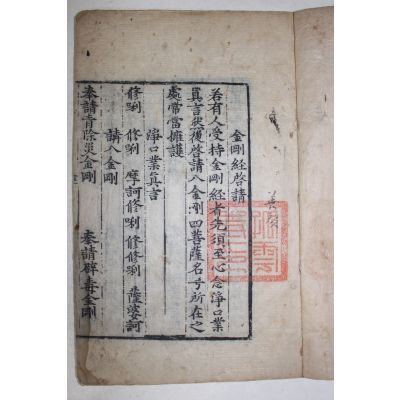 金剛經啓請
若有人受持金剛經者先須至心念淨口業
眞言然後啓請八金剛四菩薩名号所在之
處常當擁護
淨口業眞言
修唎 修唎 摩訶修唎 修修唎 薩婆訶
請八金剛
奉請青除災金剛 奉請辟毒金剛